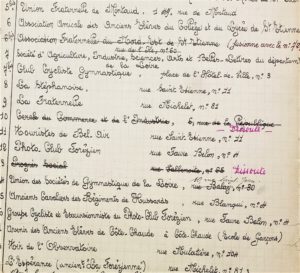 Union Fraternelle de Montaud, rue de Montaud
Association Amicale des Anciens Élèves du Collège et du Lycée de St Etienne
Association Fraternelle du Nord-Est de St Etienne
Société d'Agriculture, Industrie, Sciences, Arts et Belles-Lettres du département
de la Loire
Club Gymnastique, place de l'Hôtel de Ville, n° 3
La Stéphanoise, rue Saint Etienne, n° 21
9 La Fraternelle rue Michelet, n° 81
10 Cercle du Commerce et de l'Industrie, 6, rue de la République
Dissoute
11 Touristes de Bel Air rue Saint Etienne, n° 21
12 Photo Club Forézien rue Faure Belon, n° 4
Progrès Social n° 55 Dissoute
Union des Sociétés de Gymnastique de la Loire, rue
Anciens Cavaliers des Régiments de Hussards, rue Blanqui, n°
Groupe Cycliste et Excursionniste du Photo-Club Forézien, rue Faure Belon, n° 4
Avenir des Anciens Élèves Côte-Chaude à Côte Chaude (École de Garçons)
de l'Observatoire rue Mulatière, n°
L'Espérance (ancient Forézienne) rue Michelet, n°